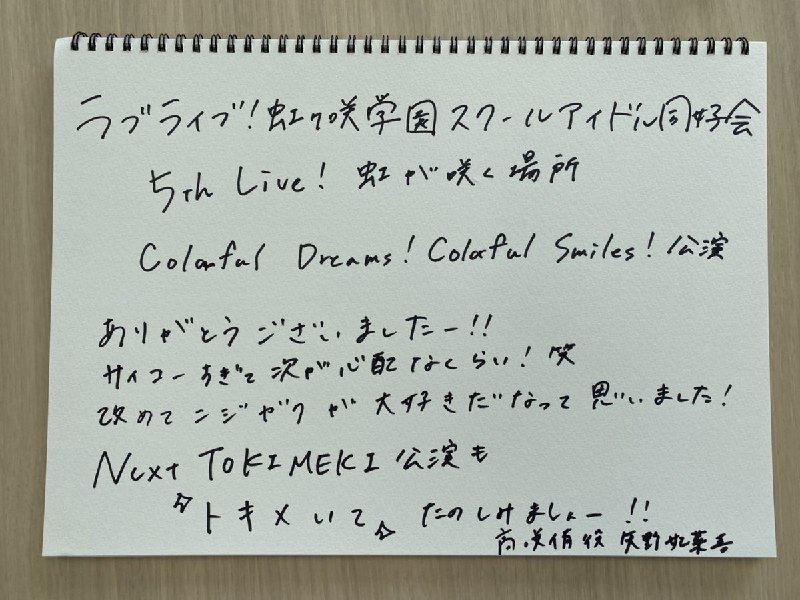 ラブライブ!虹ヶ咲学園スクールアイドル同好会
5th Live! 虹が咲く場所
Colorful Dreams! Colorful Smiles! 公演
ありがとうございましたー!!
サイコーすぎて次が心配なくらい! 笑
改めてニジガクが大好きだなって思いました!
Next TOKIMEKI 公演も
✧トキメいて✧ たのしみましょー!!
高咲侑役 矢野妃菜喜